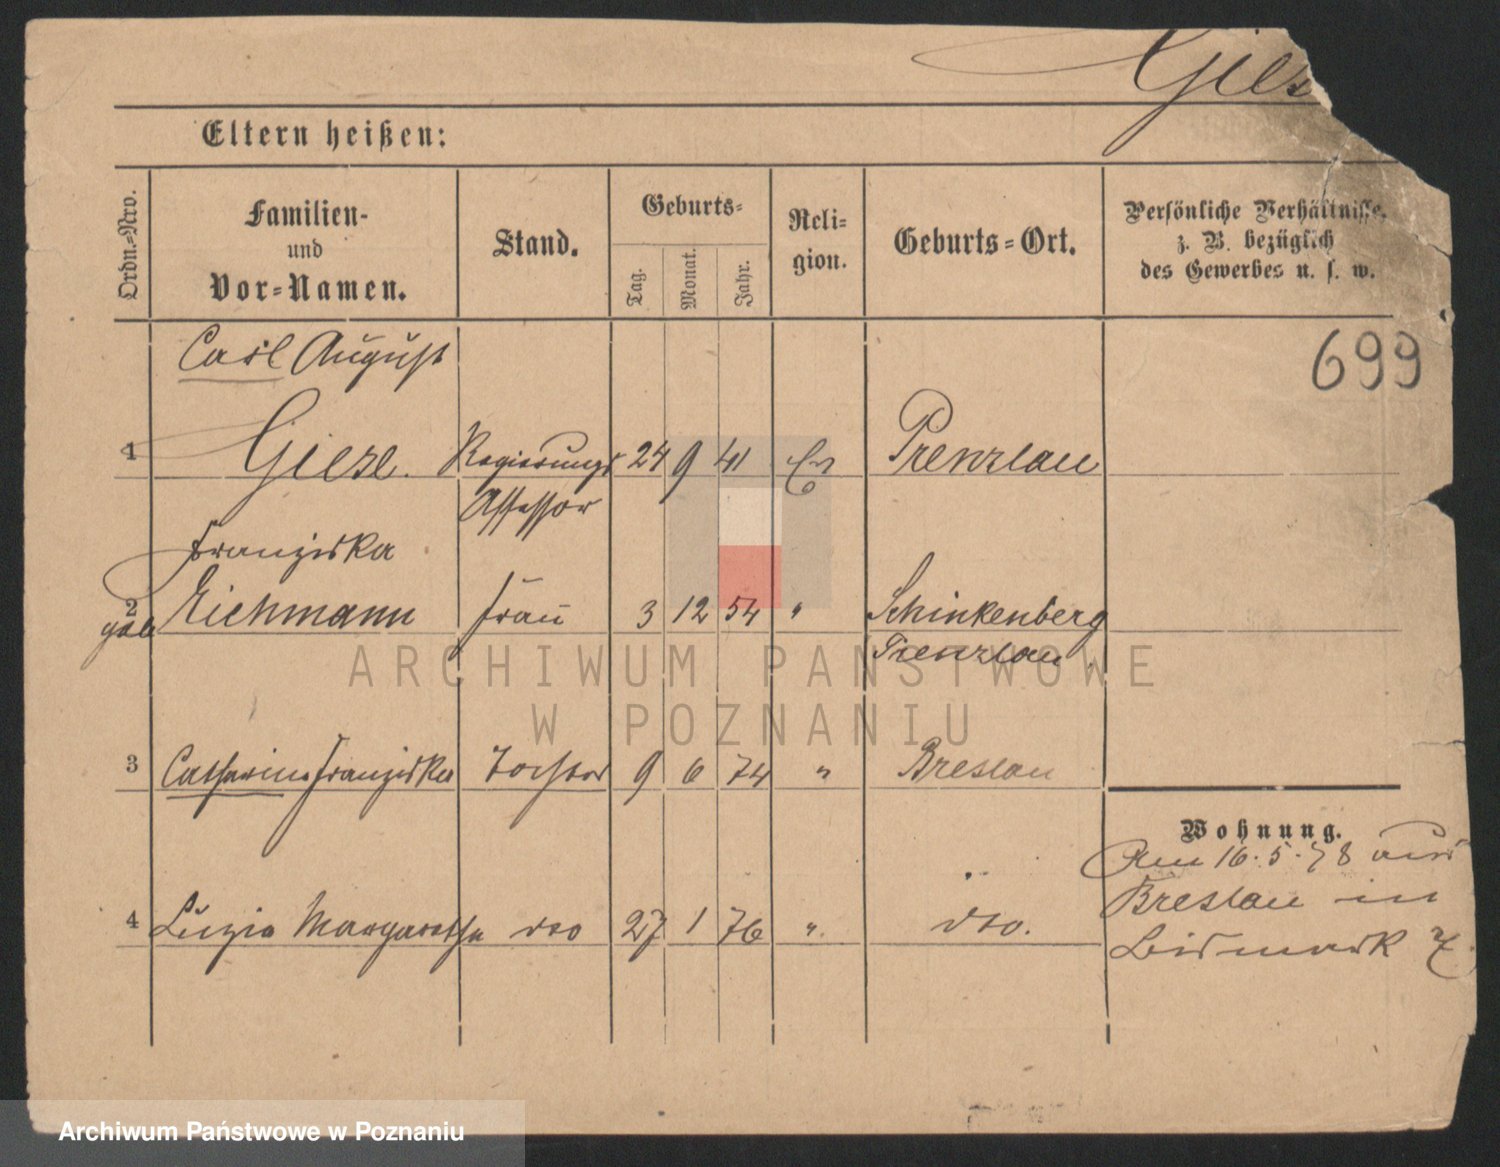 Giese
Eltern heißen:
Ordn.-Nro.
Familien-
und
Vor-Namen.
Stand.
Geburts-
Tag.
Monat.
Jahr.
Reli-
gion.
Geburts-Ort.
Persönliche Verhältnisse,
z. B. bezüglich
des Gewerbes u. s. w.
699
Carl August
1 Giese. Regierungs 24 9 41 Ev Prenzlau
Assessor
Franziska
2 Eichmann Frau 3 12 54 " Schinkenberg
geb
Prenzlau
3 Catharina Franziska Tochter 9 6 74 " Breslau
Wohnung.
Am 16.5.78 aus
Breslau in
4 Luzia Margarethe dto 27 1 76 " dto.
Bismark 7
ARCHIWUM PAŃSTWOWE
W POZNANIU
Archiwum Państwowe w Poznaniu